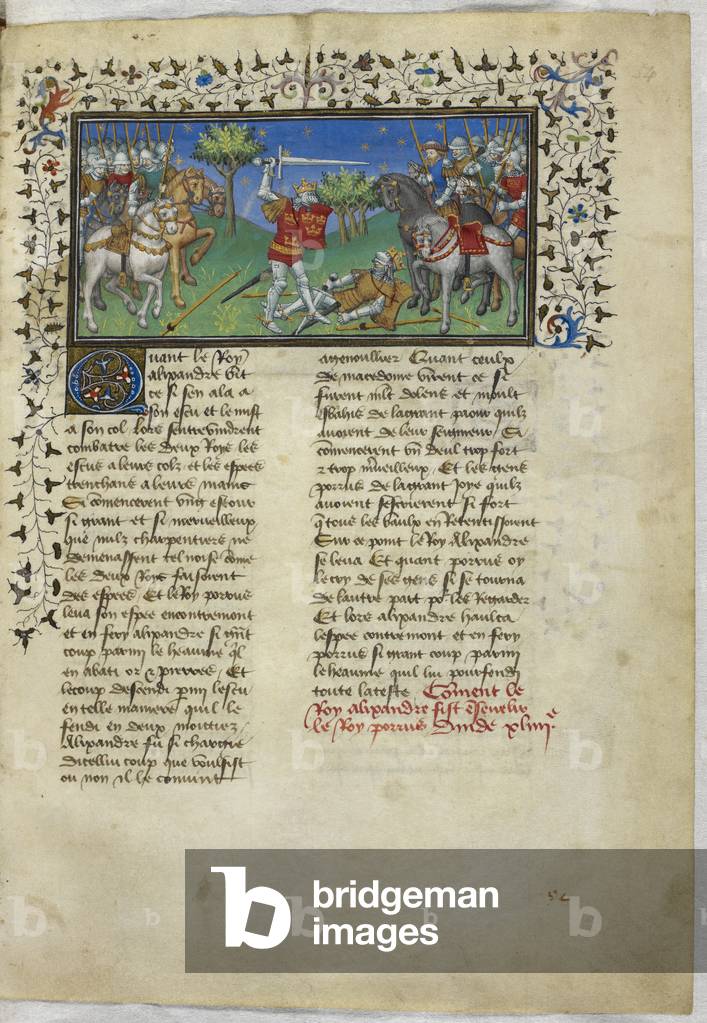 Quant le Roy
alixandre vit
ce si sen ala a
son escu et le mist
a son col. Lors sentrevindrent
combatre les deux Roys les
escus a leurs colz et les espees
trenchans a leurs mains
Si cōmencerent vng estour
si grant et si merveilleux
que nulz charpentiers ne
demenassent tel noise cōme
les deux Roys faisoient
des espees. Et le Roy porrus
leva son espee encontremont
et en fery alixandre si grāt
coup parmi le heaume q̄l
en abati or & pierres. Et
le coup descendi p̄mi lescu
en telle maniere quil le
fendi en deux moictiez
Alixandre fu si chargie
dicellui coup que voulsist
ou non il le convint
agenoullier Quant ceulx
de macedome virent ce si
furent mlt dolens et moult
esbahis de la grant paour quilz
avoient de leur seigneur. Si
cōmencerent vn̄ deul trop fort
& trop mveilleux. Et les gens
porrus de la grant Joye quilz
avoient sescrierent si fort
q̄ tous les vaulx en Retentissoient
Sur ce point le Roy Alixandre
se leva Et quant porrus oy
le cry de ses gens si se tourna
de lautre part po' les Regarder
Et lors alixandre haulca
lespee contremont et en fery
porrus si grant coup parmi
le heaume quil lui pourfendi
toute la teste Cōment le
Roy alixandre fist ēsevelir
le Roy porrus dinde xliiii.e
54
b bridgeman
images